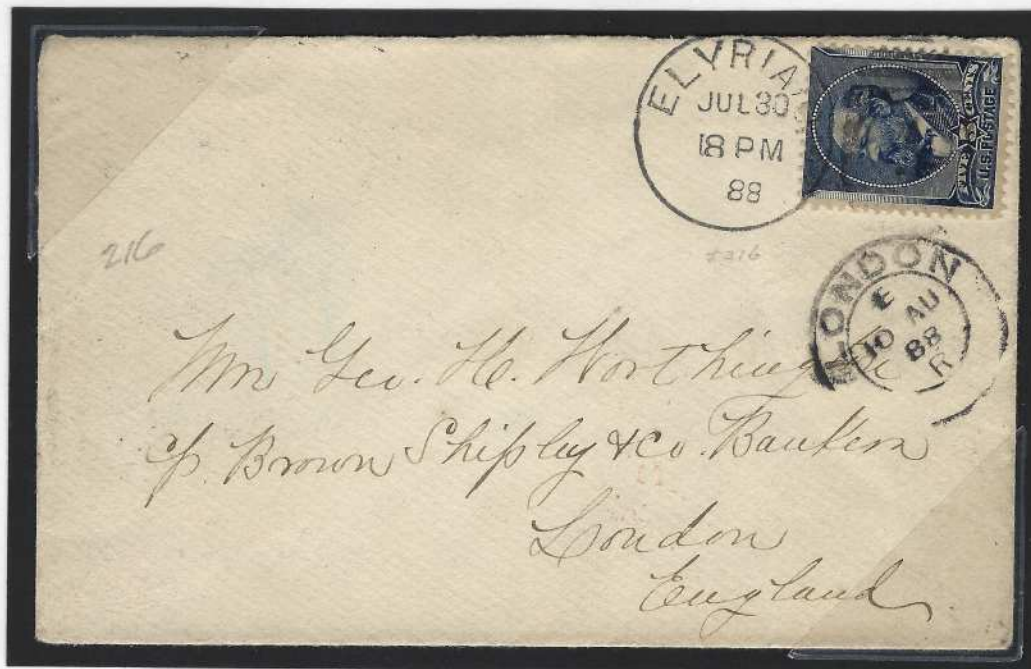 ELYRIA
JUL 30
8 PM
88
FIVE 5 CENTS
U.S. POSTAGE
216
LONDON
E
10 AU
88
R
Mr Geo. H. Worthington
c/o Brown Shipley & Co. Bankers
London
England